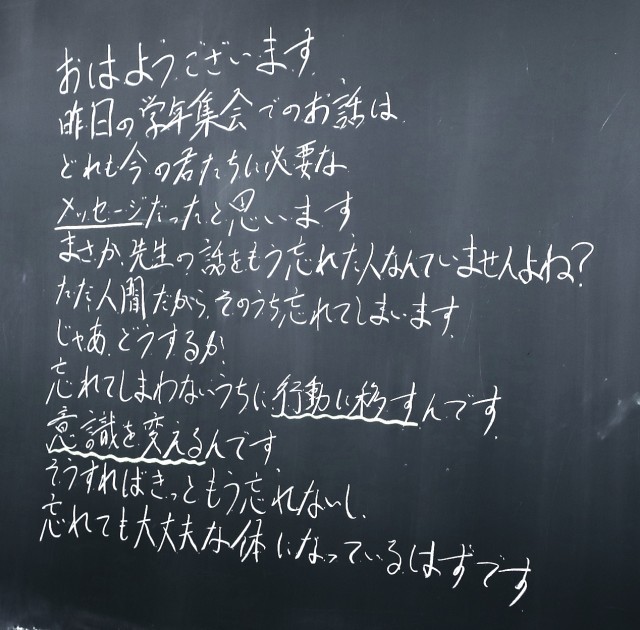 おはようございます。
昨日の学年集会でのお話は
どれも今の君たちに必要な
メッセージだったと思います。
まさか、先生の話をもう忘れた人なんていませんよね？
ただ、人間だから、そのうち忘れてしまいます。
じゃあ、どうするか。
忘れてしまわないうちに行動に移すんです。
意識を変えるんです。
そうすればきっともう忘れないし、
忘れても大丈夫な体になっているはずです。